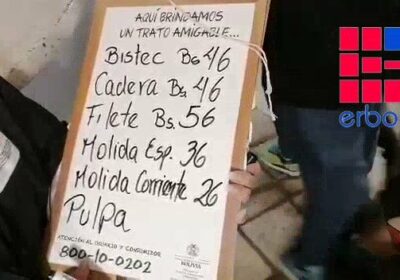 AQUÍ BRINDAMOS
UN TRATO AMIGABLE...
Bistec Bs 46
Cadera Bs. 46
Filete Bs. 56
Molida Esp. 36
Molida Corriente 26
Pulpa
ATENCIÓN AL USUARIO Y CONSUMIDOR
800-10-0202
BOLIVIA
erbo